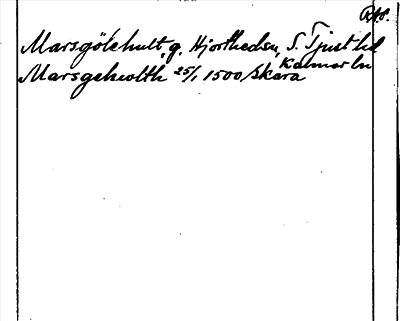 RAP.
Marsgölehult, g. Hjortheds sn, S. Tjust hd
Kalmar ln
Marsgehwlth 25/1 1500 Skara